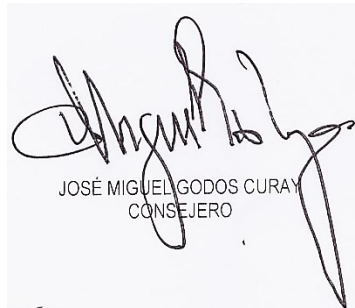 JOSÉ MIGUEL GODOS CURAY
CONSEJERO